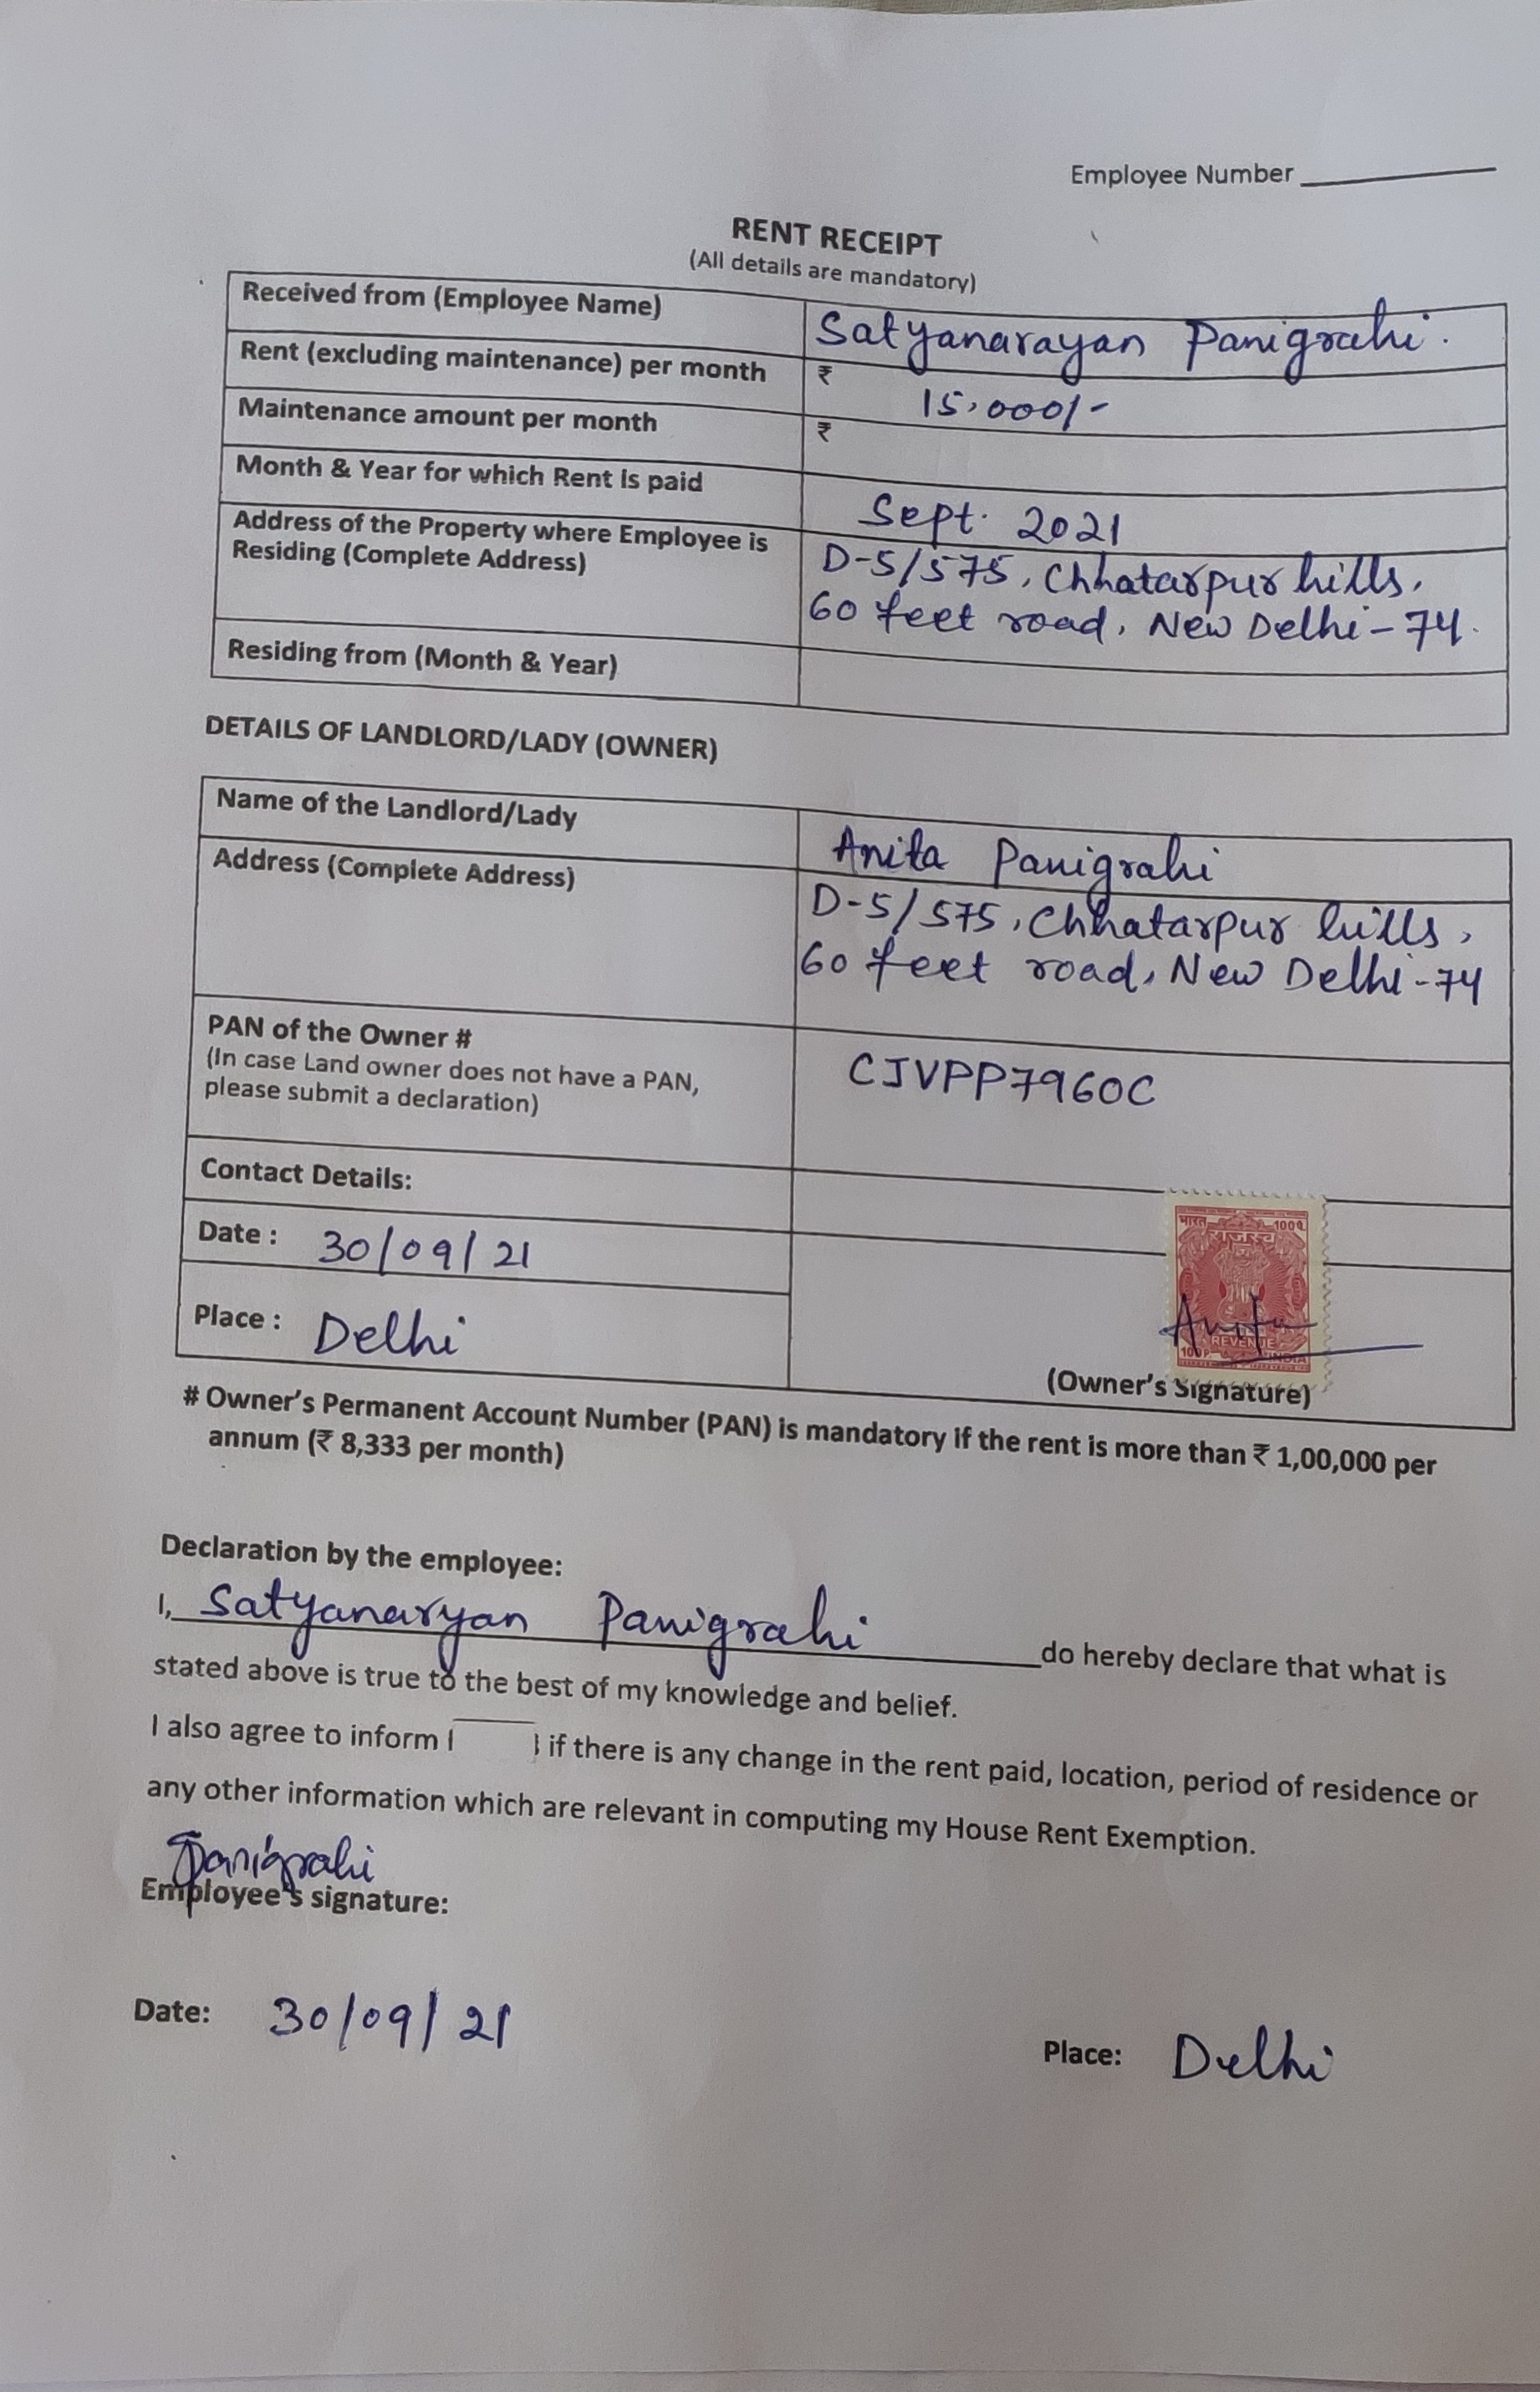 Employee Number
RENT RECEIPT
(All details are mandatory)
Received from (Employee Name) Satyanarayan Panigrahi.
Rent (excluding maintenance) per month ₹ 15,000/-
Maintenance amount per month ₹
Month & Year for which Rent is paid Sept. 2021
Address of the Property where Employee is D-5/575, Chhatarpur hills,
Residing (Complete Address) 60 feet road, New Delhi-74.
Residing from (Month & Year)
DETAILS OF LANDLORD/LADY (OWNER)
Name of the Landlord/Lady Anita Panigrahi
Address (Complete Address) D-5/575, Chhatarpur hills,
60 feet road, New Delhi-74
PAN of the Owner # CJVPP7960C
(In case Land owner does not have a PAN,
please submit a declaration)
Contact Details:
भारत 100P
राजस्व
Date : 30/09/21
Anita
REVENUE
100P INDIA
Place : Delhi
(Owner's Signature)
# Owner's Permanent Account Number (PAN) is mandatory if the rent is more than ₹ 1,00,000 per
annum (₹ 8,333 per month)
Declaration by the employee:
I, Satyanaryan Panigrahi do hereby declare that what is
stated above is true to the best of my knowledge and belief.
I also agree to inform if there is any change in the rent paid, location, period of residence or
any other information which are relevant in computing my House Rent Exemption.
Panigrahi
Employee's signature:
Date: 30/09/21
Place: Delhi